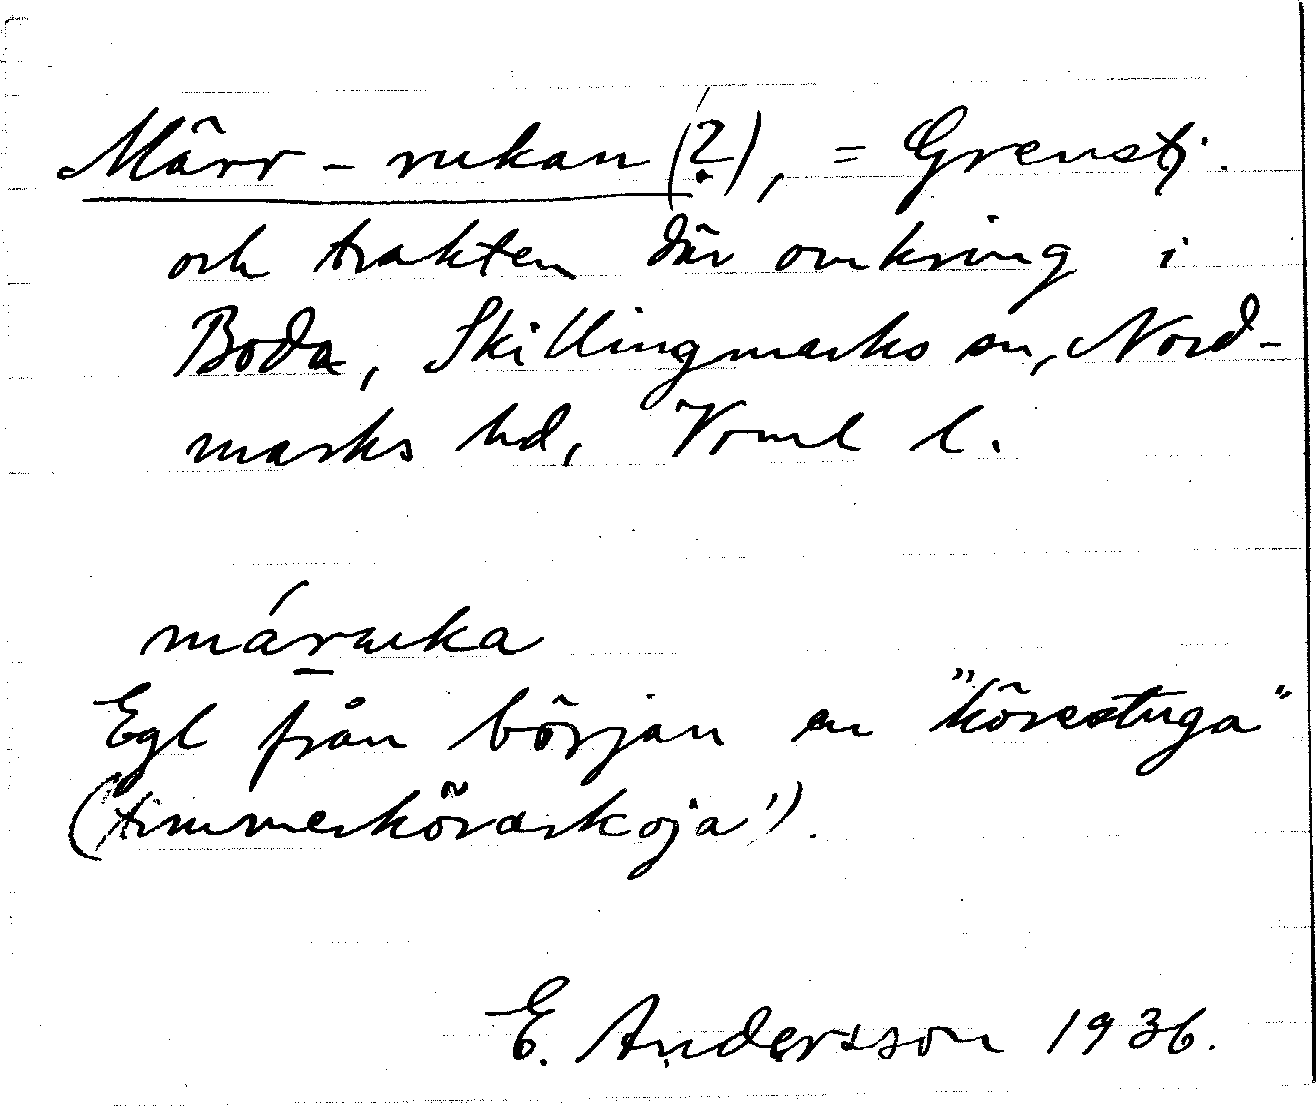 Märr-rukan (?), = Grenstj.
och trakten där omkring i
Boda, Skillingmarks sn, Nord-
marks hd, Vrml l.
máruka
Egl från början en "körestuga"
(timmerkörarkoja').
E. Andersson 1936.